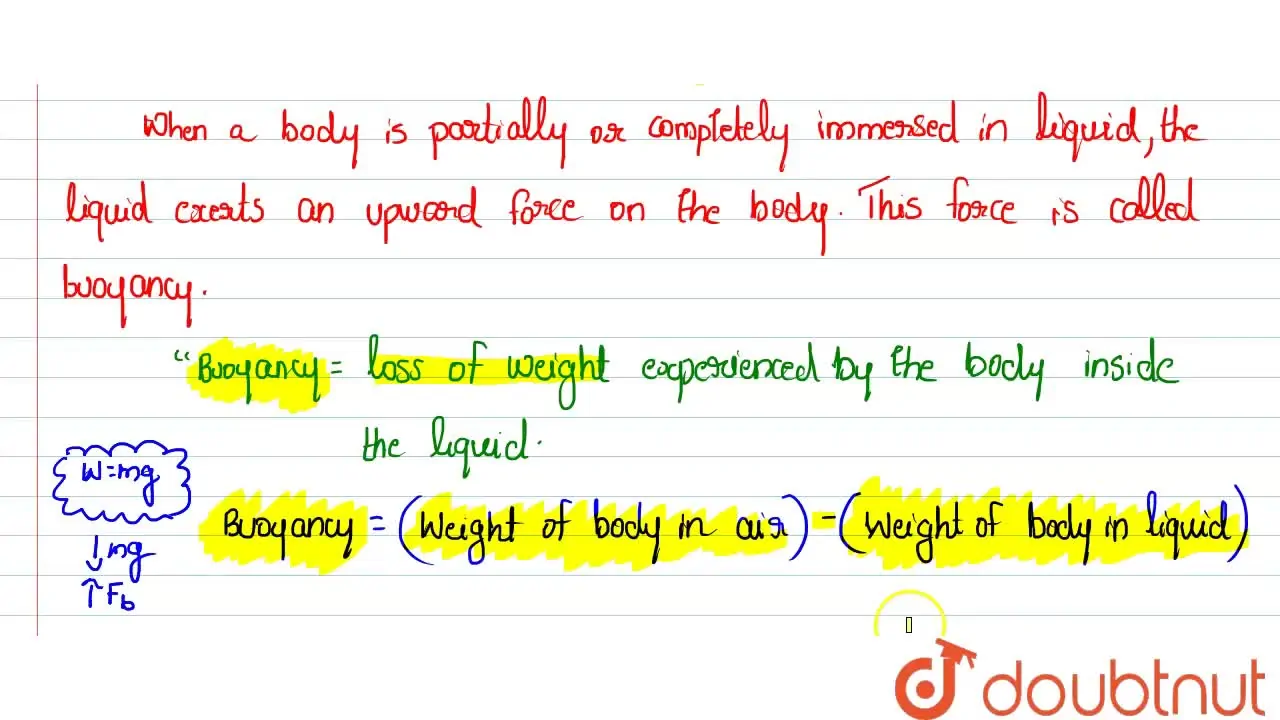 When a body is partially or completely immersed in liquid, the
liquid exerts an upward force on the body. This force is called
buoyancy.
"Buoyancy = loss of weight experienced by the body inside
the liquid.
W=mg
Buoyancy = (Weight of body in air) - (Weight of body in liquid)
↓mg
↑Fb
doubtnut